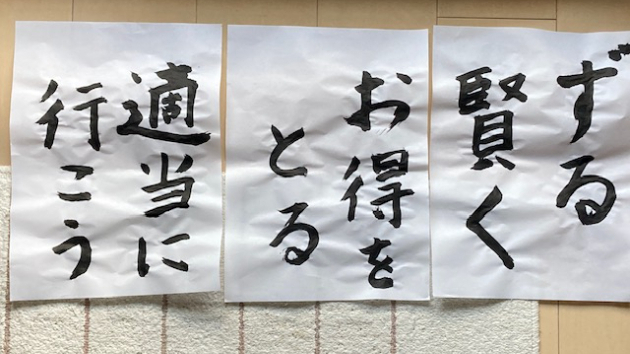 ずる
賢く
お得を
とる
適当に
行こう